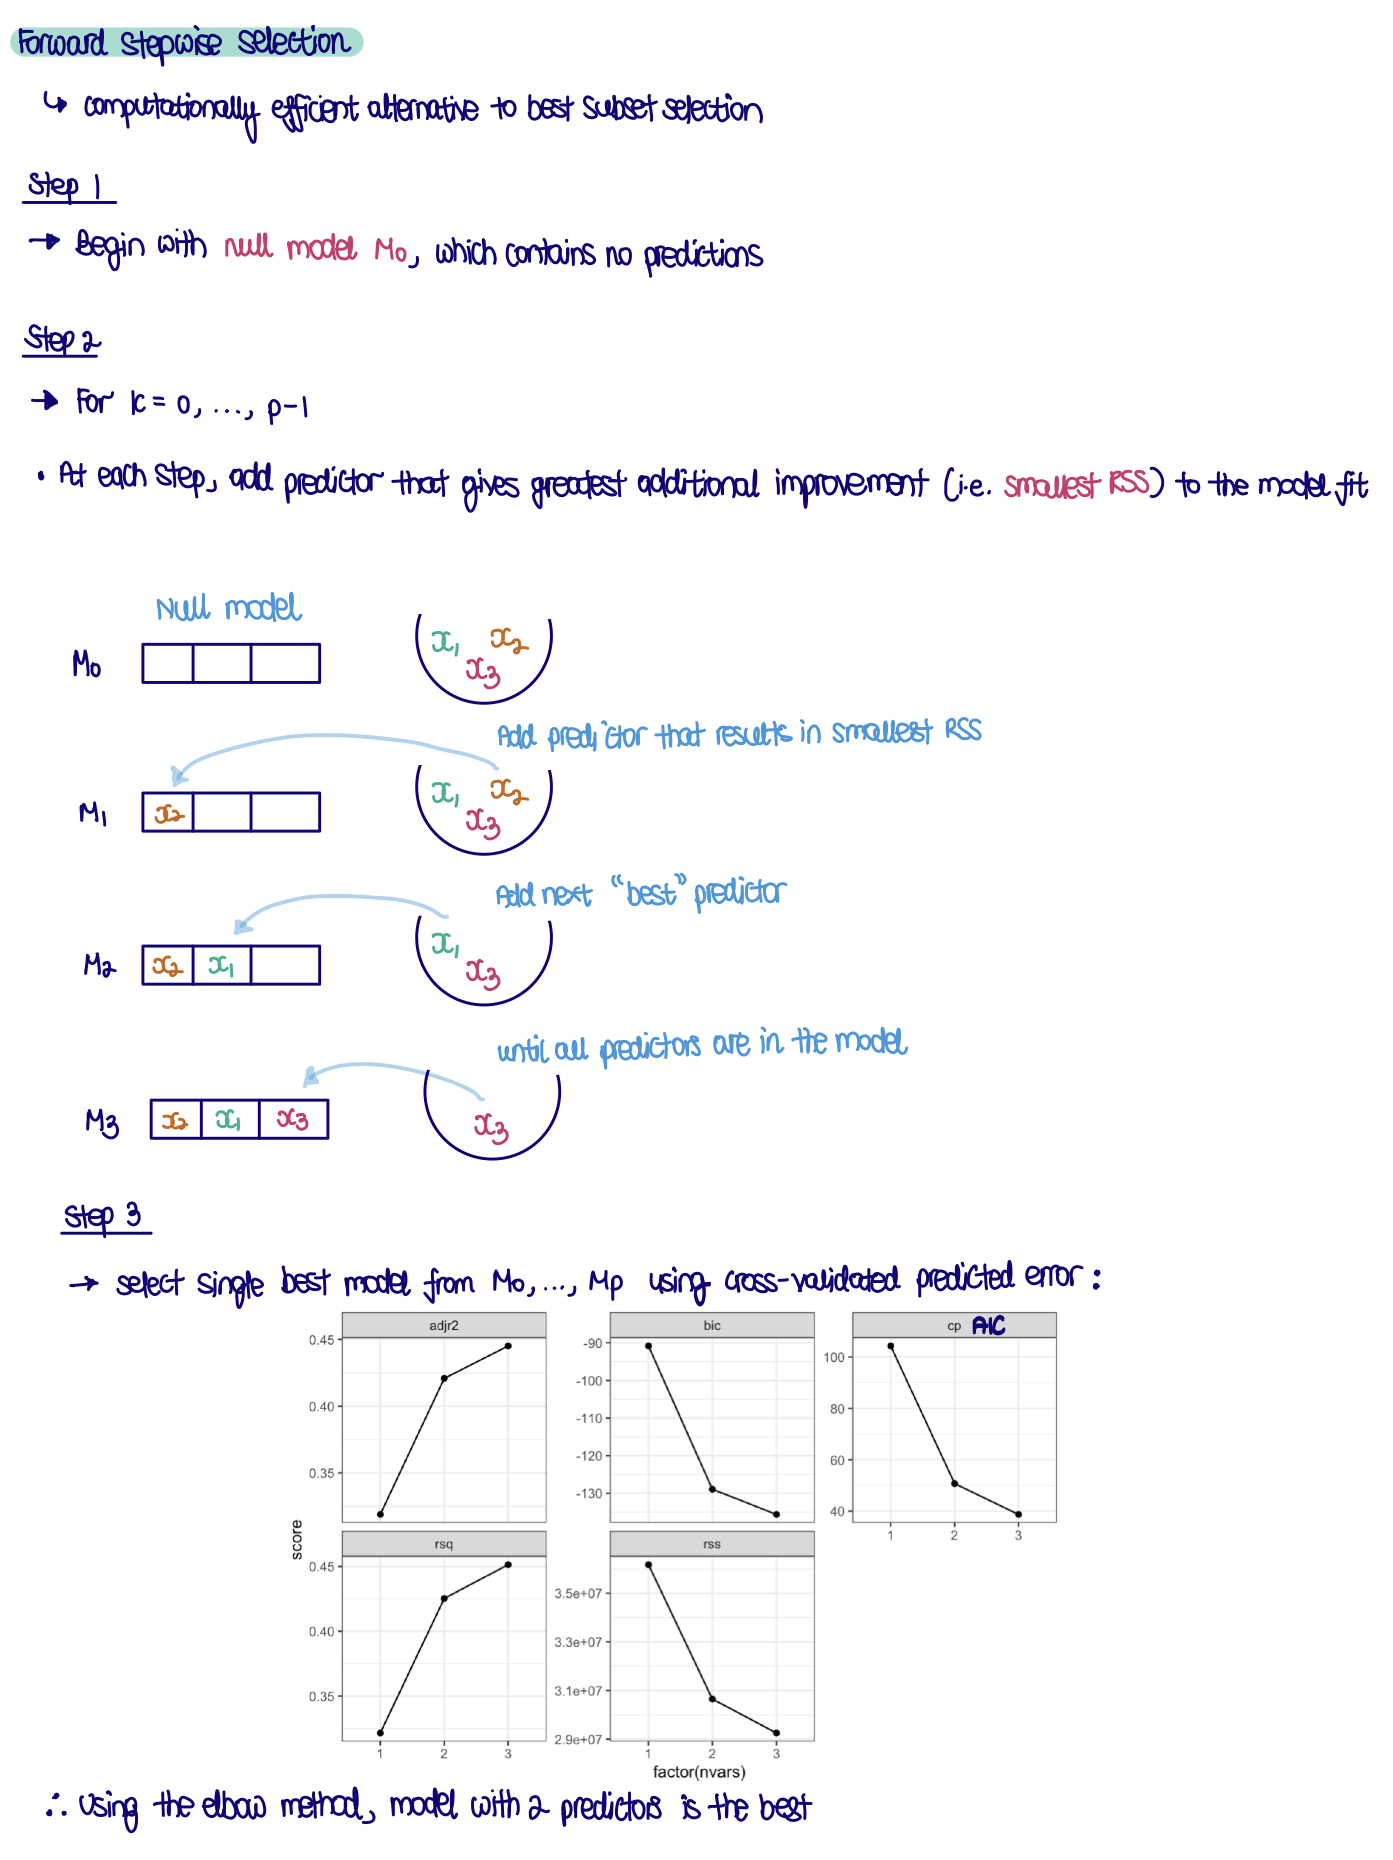 Forward Stepwise Selection
↳ computationally efficient alternative to best subset selection
Step 1
→ Begin with null model M₀, which contains no predictions
Step 2
→ For k = 0, ..., p-1
• At each step, add predictor that gives greatest additional improvement (i.e. smallest RSS) to the model fit
Null model
M₀
x₁ x₂
x₃
Add predictor that results in smallest RSS
M₁
x₂
x₁ x₂
x₃
Add next "best" predictor
M₂
x₂ x₁
x₁
x₃
until all predictors are in the model
M₃
x₂ x₁ x₃
x₃
Step 3
→ select single best model from M₀, ..., Mp using cross-validated predicted error:
adjr2
0.45
0.40
0.35
bic
-90
-100
-110
-120
-130
cp AIC
100
80
60
40
1 2 3
score
rsq
0.45
0.40
0.35
1 2 3
rss
3.5e+07
3.3e+07
3.1e+07
2.9e+07
1 2 3
factor(nvars)
∴ Using the elbow method, model with 2 predictors is the best